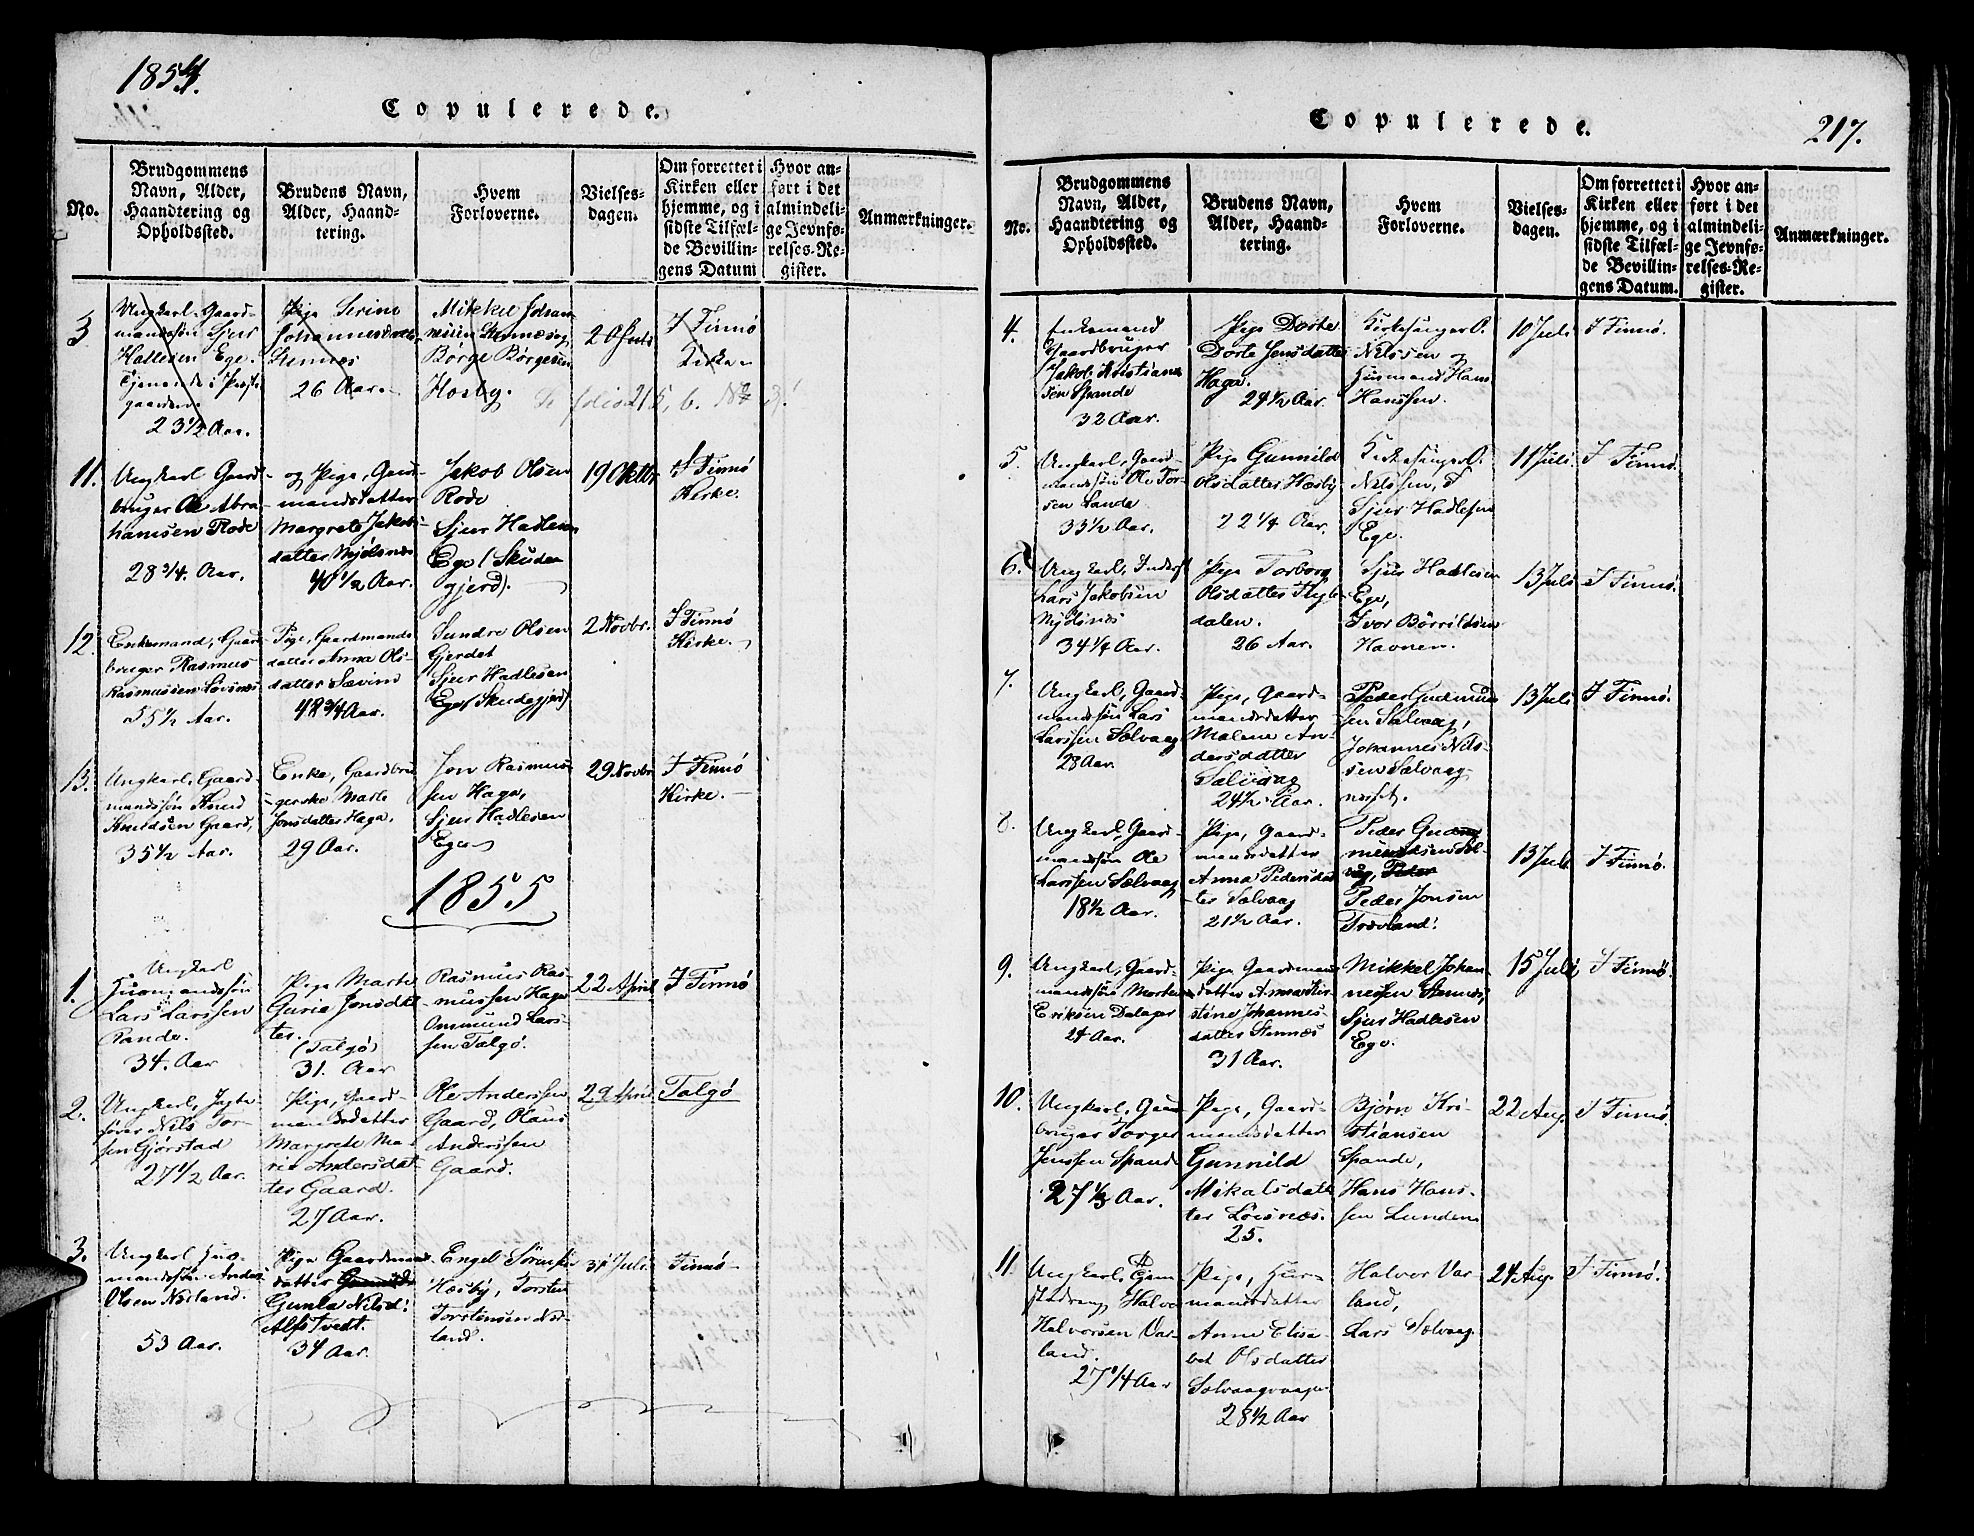 1854.
Copulerede.
No.
Brudgommens
Navn, Alder,
Haandtering og
Opholdssted.
Brudens Navn,
Alder, Haand-
tering.
Hvem
Forloverne.
Vielses-
dagen.
Om forrettet i
Kirken eller
hjemme, og i
sidste Tilfæl-
de Bevillin-
gens Datum
Hvor an-
ført i det
almindeli-
ge Jevnfø-
relses-Re-
gister.
Anmærkninger.
3
Ungkarl, Gaard-
mandssøn Sjur
Hatlesen Ege.
Tjenende i Præste
gaarden
23½ Aar.
Pige Serine
Johannesdatter
Stennæs
26 Aar.
Mikkel Johan-
nesen Stennæs og
Børge Børgesen
Hosby.
20 Juli
I Finnø
Kirke
folio 215, b. No 3!
11.
Ungkarl Gaard-
bruger Ole Abra-
hamsen Rode
28 3/4. Aar.
og Pige, Gaard-
mandsdatter
Margrete Jakobs-
datter Mjølsnæs
40 1/2 Aar.
Jakob Olsen
Rode
Sjur Hadlesen
Ege (Skude
gjerd).
19 Oktbr.
I Finnø
Kirke.
12.
Enkemand, Gaard
bruger Rasmus
Rasmussen Løvsnæs
55½ Aar.
Pige, Gaardmands
datter Anna Ols-
datter Sævim
48 3/4 Aar.
Sundre Olsen
Gjerdet
Sjur Hadlesen
Ege (Skudegjerd)
2 Novbr.
I Finnø
Kirke.
13.
Ungkarl, Gaard-
mandssøn Knud
Knudsen Gaard,
35½ Aar.
Enke, Gaardbru
-gerske Marte
Jonsdatter Haga,
29 Aar.
Jon Rasmus
sen Haga,
Sjur Hadlesen
Ege
29 Novbr
I Finnø
Kirke.
1855
1.
Ungkarl
Husmandssøn
Lars Larssen
Rande.
34. Aar
Pige Marte
Guria Jonsdat
ter.
(Talgø)
31. Aar
Rasmus Ras-
mussen Haga
Ommund Lars-
sen Talgø.
22 April
I Finnø
2.
Ungkarl, Jagte-
fører Nils Tor-
sen Gjørstad
27 1/2 Aar.
Pige, Gaard-
mandsdatter
Margrete Ma-
ria Andersdat-
ter Gaard.
27 Aar.
Ole Anderssen
Gaard, Klaus
Anderssen
Gaard.
29 April
Talgø
3.
Ungkarl Hus-
mandssøn Anders
Olsen Nesland.
53 Aar.
Pige Gaardmands
datter
Gunla Nilsd:
Alfs Tvedt.
34 Aar.
Engel Sørensen
Hæsby, Torsten
Torstensen Nes-
land.
31 Juli
Finnø
Copulerede.
217.
No.
Brudgommens
Navn, Alder,
Haandtering og
Opholdssted.
Brudens Navn,
Alder, Haand-
tering.
Hvem
Forloverne.
Vielses-
dagen.
Om forrettet i
Kirken eller
hjemme, og i
sidste Tilfæl-
de Bevillin-
gens Datum.
Hvor an-
ført i det
almindeli-
ge Jevnfø-
relses-Re-
gister.
Anmærkninger.
4.
Enkemand
Gaardbruger
Jakob Kristian-
sen Spande
32 Aar.
Pige Dorte
Dorte Jensdatter
Haga.
24½ Aar.
Kirkesanger O.
Nilssen og
Husmand Hans
Hanssen.
10 Juli
I Finnø.
5.
Ungkarl, Gaard-
mandssøn Ole Tor-
sen Lande
33½ Aar.
Pige Gunnild
Olsdatter Hæsby
22 1/4 Aar.
Kirkesanger O.
Nilssen,
Sjur Hadlesen
Ege.
11 Juli
I Finnø.
6.
Ungkarl, Inderst
Lars Jakobsen
Mjølsnæs
34 1/4 Aar.
Pige Torborg
Olsdatter Flyg-
dalen.
26 Aar.
Sjur Hadlesen
Ege,
Ivor Børrildsen
Havnen.
13 Juli
I Finnø.
7.
Ungkarl, Gaard-
mandssøn Lars
Larssen Sælvaag
28 Aar.
Pige, Gaard-
mandsdatter
Malene An-
dersdatter
Salvaag
24½ Aar.
Peder Gudmund
sen Salvaag,
Johannes Nils-
sen Sælvaag-
neset.
13 Juli
I Finnø.
8.
Ungkarl, Gaard-
mandssøn Ole
Larssen Sælvaag
18½ Aar.
Pige, Gaard-
mandsdatter
Anna Pedersdat
ter Salvaag
21½ Aar.
Peder Gud
mundsen Sal-
vag, Peder
Peder Jonsen
Træeland.
13 Juli
I Finnø.
9.
Ungkarl, Gaard-
mandssøn Morten
Eriksen Dalager
24 Aar.
Pige Gaardmans
datter Anna Kir-
stine Johannes-
datter Stennæs
31 Aar.
Mikkel Johan
nessen Stennes,
Sjur Hadlesen
Ege.
15 Juli
I Finnø.
10.
Ungkarl, Gaard
bruger Torger
Jenssen Spande
27 1/3 Aar.
Pige, Gaard-
mandsdatter
Gunnild
Mikalsdat-
ter Løisnæs.
25.
Bjørn Kri-
stiansen
Spande,
Hans Hans-
sen Lunden
22 Aug.
I Finnø.
11.
Ungkarl,
Halvor
Halvorsen Var-
land.
27 1/4 Aar
Pige, Hus-
mandsdatter
Anne Elisa-
bet Olsdatter
Sælvaagvaage
28½ Aar
Halvor Var
land,
Lars Sælvaag.
24 Aug.
I Finnø.